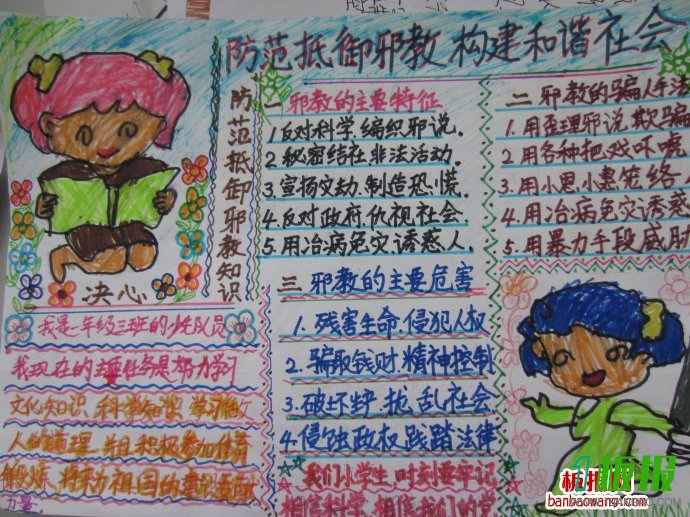 防范抵御邪教 构建和谐社会
防范抵卸邪教知识
一 邪教的主要特征
1.反对科学,编织邪说.
2.秘密结在非法活动.
3.宣扬灾劫.制造恐.慌.
4.反对政府.仇视社会.
5.用冶病免灾.诱惑人.
二 邪教的骗人手法
1.用歪理邪说.欺骗
2.用各种把戏吓唬
3.用小恩.小惠笼络
4.用冶病免灾诱惑
5.用暴力手段威胁
三 邪教的主要危害
1.残害生命.侵犯人权
2.骗取钱财.精神控制
3.破坏 扰乱社会
4.侵蚀政权践踏法律
我们小学生,时刻要牢记
决心
我是一年级三班的少年队员
我现在的主要任务是努力学习
文化知识、科学知识 学习做
人的道理 并且积极参加体育
锻炼,将来为祖国的
力量
板报
banbaowang.com